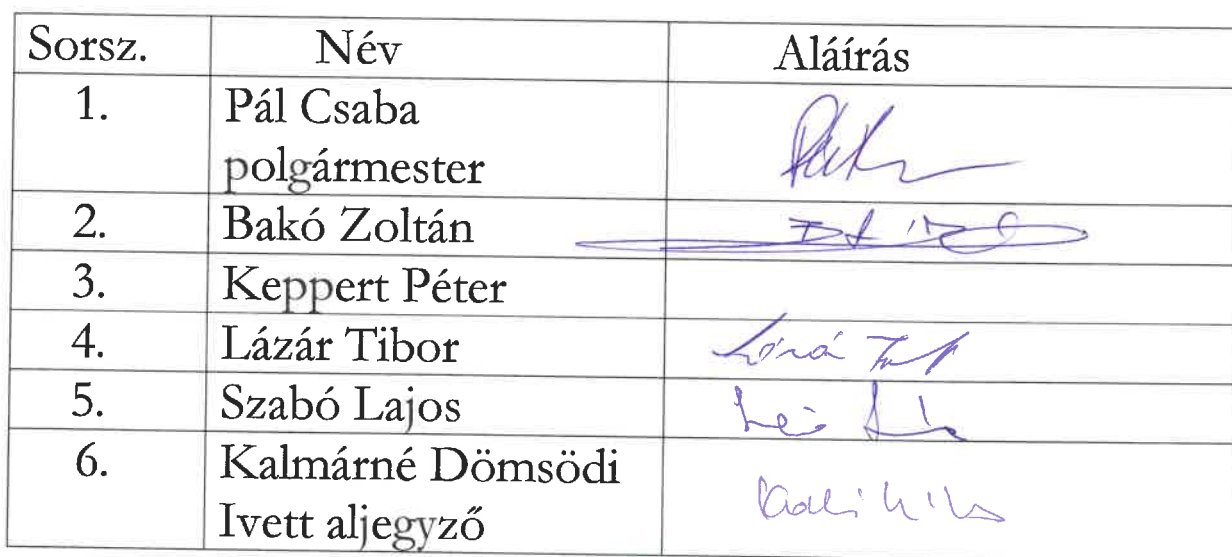 Sorsz. Név Aláírás
1. Pál Csaba
polgármester
2. Bakó Zoltán
3. Keppert Péter
4. Lázár Tibor
5. Szabó Lajos
6. Kalmárné Dömsödi
Ivett aljegyző